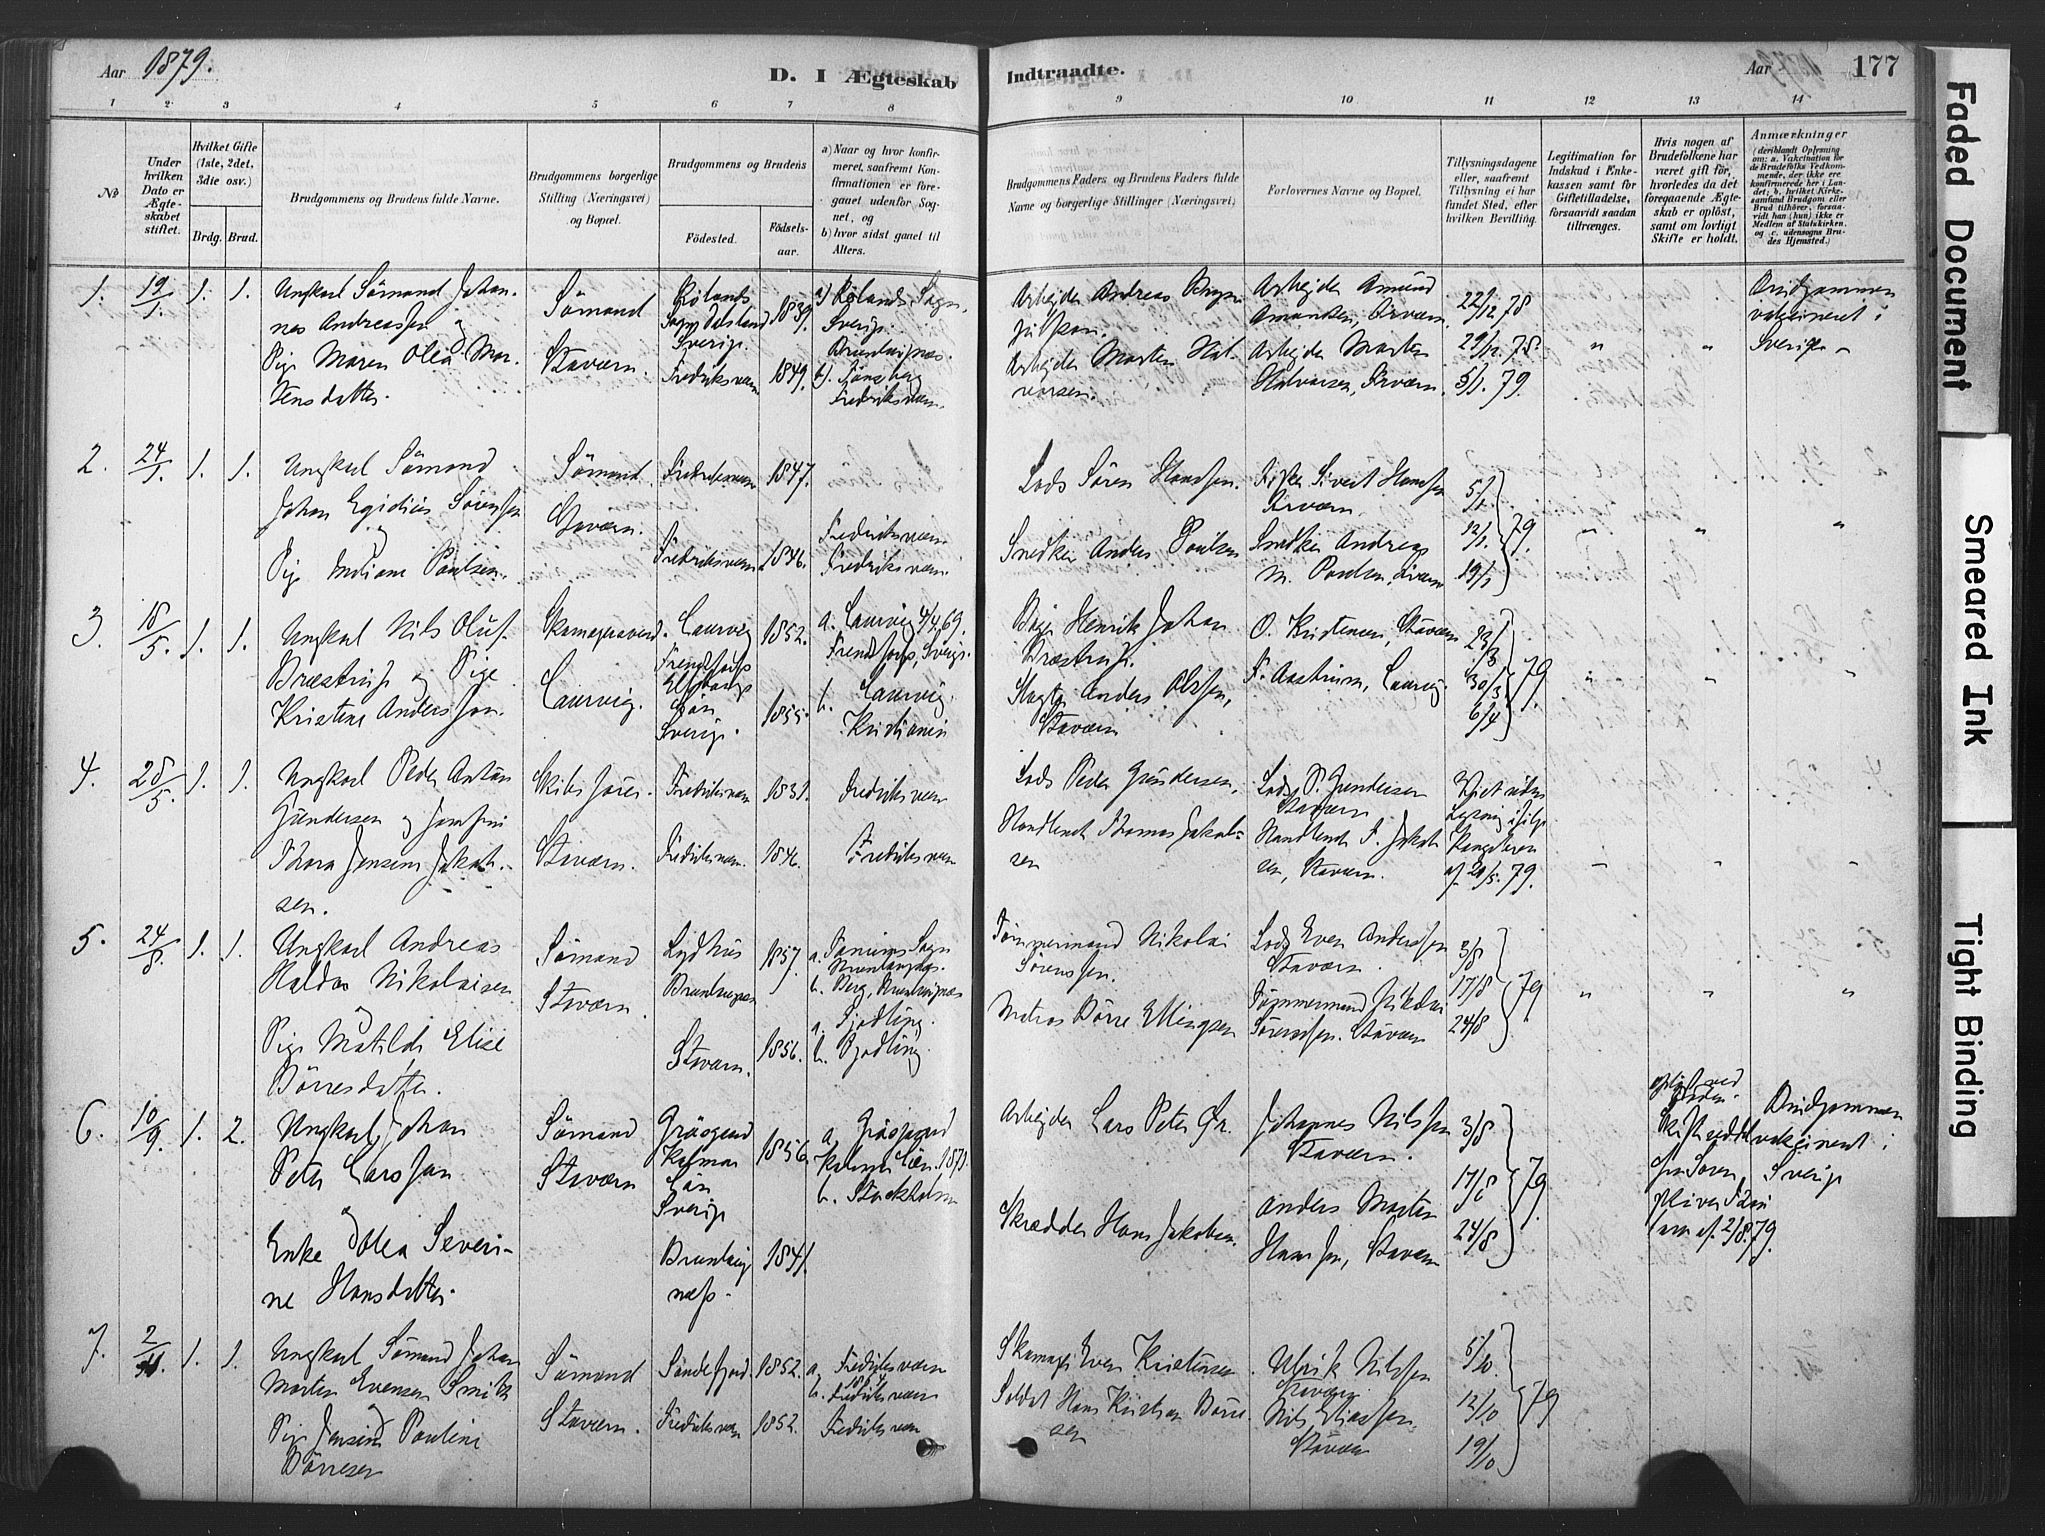 Aar 1879.
D. I Ægteskab
Indtraadte.
Aar
177
1 2 3 4 5 6 7 8
9 10 11 12 13 14
No
Under hvilken Dato er Ægteskabet stiftet.
Hvilket Gifte (1ste, 2det, 3die osv.)
Brdg. Brud.
Brudgommens og Brudens fulde Navne.
Brudgommens borgerlige Stilling (Næringsvei) og Bopæl.
Brudgommens og Brudens
Födested.
Födsels-aar.
a) Naar og hvor konfirmeret, saafremt Konfirmationen er foregaaet udenfor Sognet, og
b) hvor sidst gaaet til Alters.
Brudgommens Faders og Brudens Faders fulde Navne og borgerlige Stillinger (Næringsvei)
Forlovernes Navne og Bopæl.
Tillysningsdagene eller, saafremt Tillysning ei har fundet Sted, efter hvilken Bevilling.
Legitimation for Indskud i Enkekassen samt for Giftetilladelse, forsaavidt saadan tiltrænges.
Hvis nogen af Brudefolkene har været gift för, hvorledes da det foregaaende Ægteskab er oplöst, samt om lovligt Skifte er holdt.
Anmærkninger
(deriblandt Oplysning om: a. Vakcination for de Brudefolks Vedkommende, der ikke ere konfirmerede her i Landet; b. hvilket Kirkesamfund Brudgom eller Brud tilhörer, forsaavidt han (hun) ikke er Medlem af Statskirken, og c. udensogns Brudes Hjemsted.)
1. 19/1. 1. 1.
Ungkarl Sömand Johan-
nes Andreassen og
Pige Maren Olea Mor-
tensdatter.
Sömand
Staværn.
Dalsland
Sverige.
1839.
Fredriksværn 1849.
Sverige.
Brunlanæs.
b). Tönsberg
Fredriksværn.
Arbejder Andreas
Arbejder Morten Hal-
vorsen.
Arbejder Amund
Amundsen, Stværn.
Arbejder Morten
Halvorsen, Stværn.
22/12. 78
29/12. 78.
5/1. 79.
" "
Brudgommen
vakcineret i
Sverige
2. 24/1. 1. 1.
Ungkarl Sömand
Johan Egidius Sörensen
og
Pige Indiane Paulsen.
Sömand.
Staværn.
Fredriksværn 1847.
Fredriksværn 1846.
Fredriksværn
Fredriksværn.
Lods Sören Hansen.
Snedker Anders Poulsen
Fisker Sivert Hansen
Stværn.
Snedker Andreas
M. Poulsen, Stværn
5/1
12/1. 79.
19/1
" " "
3. 18/5. 1. 1.
Ungkarl Nils Oluf
Bræstrup og Pige
Kristine Andersson.
Laurvig.
Laurvig 1852.
Sverige. 1855.
a. Laurvig 4/4 69.
Sverige.
b. Laurvig.
Kristiania
Henrik Johan
Bræstrup.
Anders Olssen,
Staværn
O. Kristensen, Staværn
F. Aastrum, Laurvig.
23/3
30/3 79.
6/4
" " "
4. 28/5. 1. 1.
Ungkarl Peder Anton
Gundersen og Jomfru
Thora Jensine Jakob-
sen.
Skibsförer.
Staværn.
Fredriksværn 1831.
Fredriksværn. 1846.
Fredriksværn
Fredriksværn
Lods Peder Gundersen,
Handlende Thomas Jakob-
sen
Lods P. Gundersen
Staværn
Handlende T. Jakob-
sen, Staværn.
Viet uden
Lysning ifölge
Kongebrev
af 20/5. 79.
" " "
5. 24/8. 1. 1.
Ungkarl Andreas
Haldor Nikolaisen
og
Pige Matilde Elise
Börresdatter.
Sömand
Staværn.
Brunlanæs 1857.
Staværn. 1856.
a. Tanums Sogn
Brunlanæs.
b. Berg, Brunlanæs
a. Fjodling.
b. Fjodling.
Tömmermand Nikolai
Sörensen.
Matros Börre Ellingsen
Lods Even Anderssen
Staværn.
Tömmermand Nikolai
Sörensen. Staværn
3/8
17/8 79
24/8
" " "
6. 10/9. 1. 2.
Ungkarl Johan
Peter Larsson
og
Enke Olea Severi-
ne Hansdatter.
Sömand
Staværn
Kalmar
Län
Sverige
1856
Brunlanæs. 1841.
a.
Kalmar Län. 1871.
b. Stockholm
Arbejder Lars Peter
Skrædder Hans Jakobsen.
Johannes Nilssen
Staværn.
Anders Morten
Hansen, Staværn
3/8
17/8 79.
24/8
oplöst ved
Döden.
af 2/8. 79.
Brudgommen
vakcineret i
Sverige
7. 2/11. 1. 1.
Ungkarl Sömand Johan
Morten Evensen Smith
og
Pige Jensine Pauline
Börresen
Sömand
Staværn.
Sandefjord. 1852.
Fredriksværn 1852.
a. Fredriksværn
b. Fredriksværn
Fredriksværn
Skomager Even Kristensen
Soldat Hans Kristian Börre-
sen
Ulrik Nilssen
Staværn
Nils Eliassen
Staværn
5/10.
12/10 79
19/10
Faded Document
Smeared Ink
Tight Binding